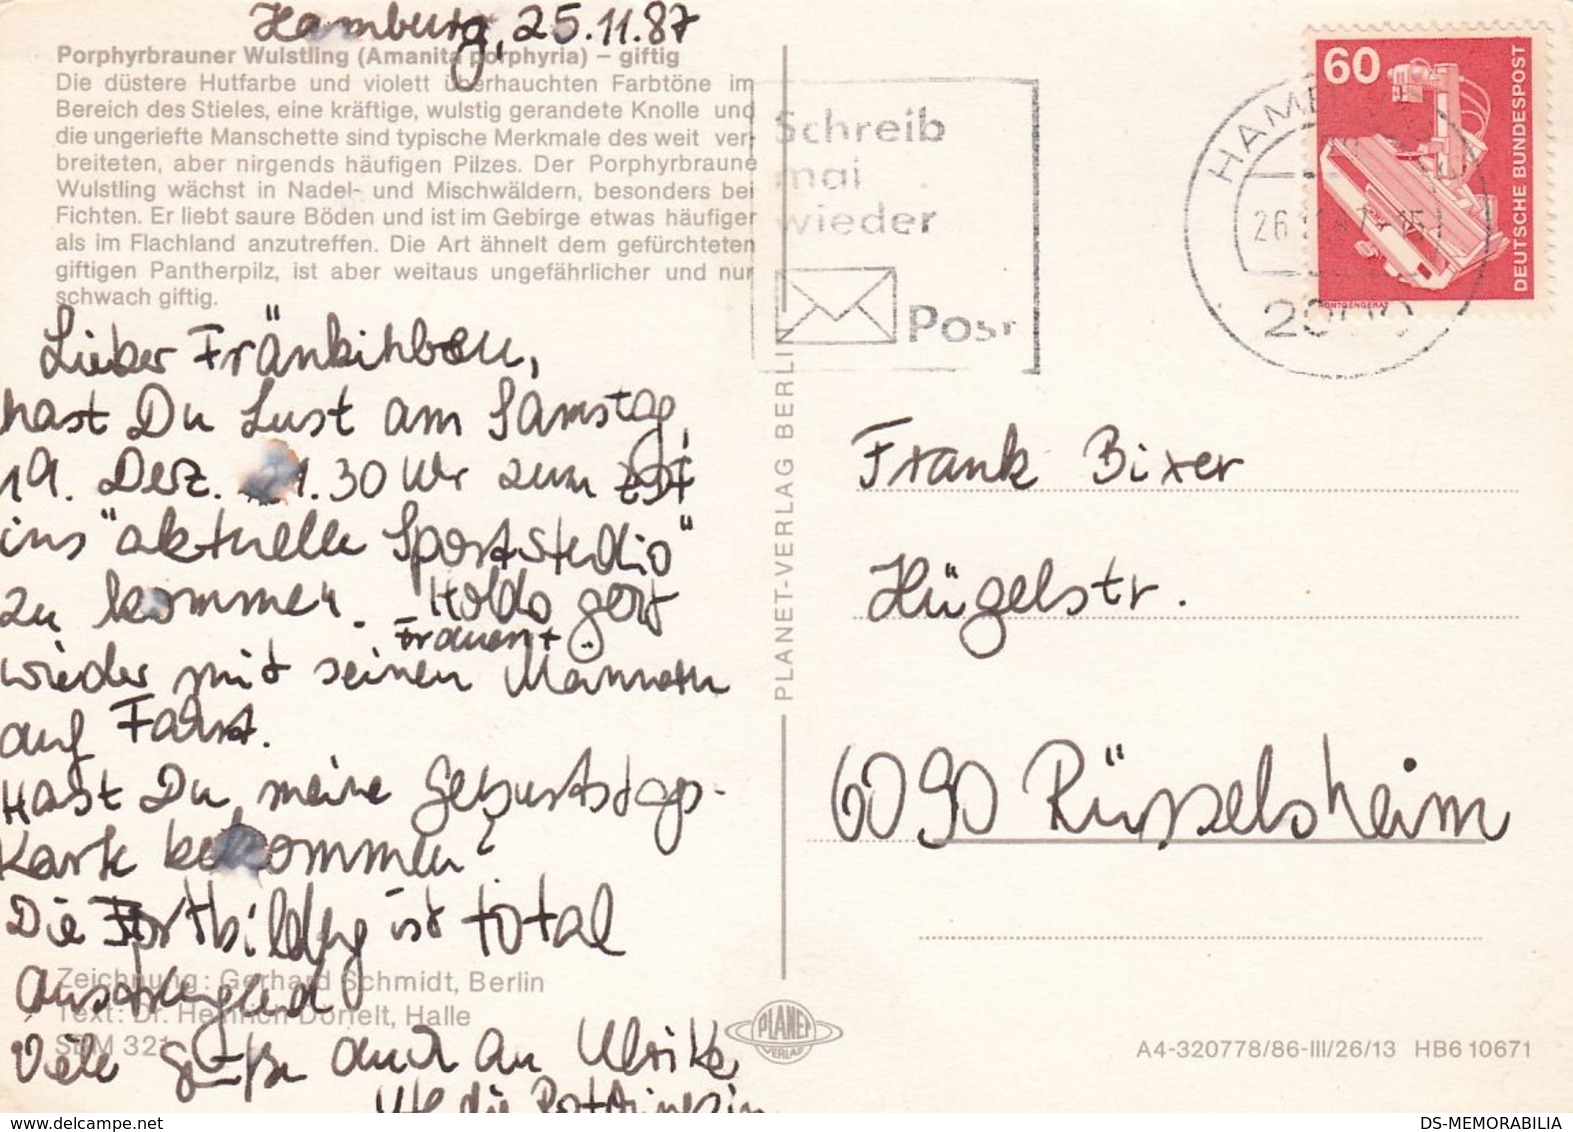 Hamburg, 25.11.87
Porphyrbrauner Wulstling (Amanita porphyria) – giftig
Die düstere Hutfarbe und violett überhauchten Farbtöne im
Bereich des Stieles, eine kräftige, wulstig gerandete Knolle und
die ungeriefte Manschette sind typische Merkmale des weit ver-
breiteten, aber nirgends häufigen Pilzes. Der Porphyrbraune
Wulstling wächst in Nadel- und Mischwäldern, besonders bei
Fichten. Er liebt saure Böden und ist im Gebirge etwas häufiger
als im Flachland anzutreffen. Die Art ähnelt dem gefürchteten
giftigen Pantherpilz, ist aber weitaus ungefährlicher und nur
schwach giftig.
Lieber
hast Du Lust am Samstag,
19. Dez. 21.30 Uhr zum
ins "aktuelle Sportstudio"
zu kommen. Holdo geht
Frauen +
wieder mit seinen Männern
auf Fahrt.
Hast Du meine Geburtstags-
Karte bekommen?
Die Fortbildung ist total
anstrengend
Viele Grüße auch an Ulrike
Ute die
Zeichnung: Gerhard Schmidt, Berlin
Text: Dr. Heinrich Dörfelt, Halle
SBM 321
PLANET-VERLAG BERLIN
PLANET
VERLAG
Schreib
mal
wieder
Post
HAMBURG
26.11.87-15
2000
60
DEUTSCHE BUNDESPOST
RÖNTGENGERÄT
Frank Bixer
Hügelstr.
6090 Rüsselsheim
A4-320778/86-III/26/13 HB6 10671
DS-MEMORABILIA